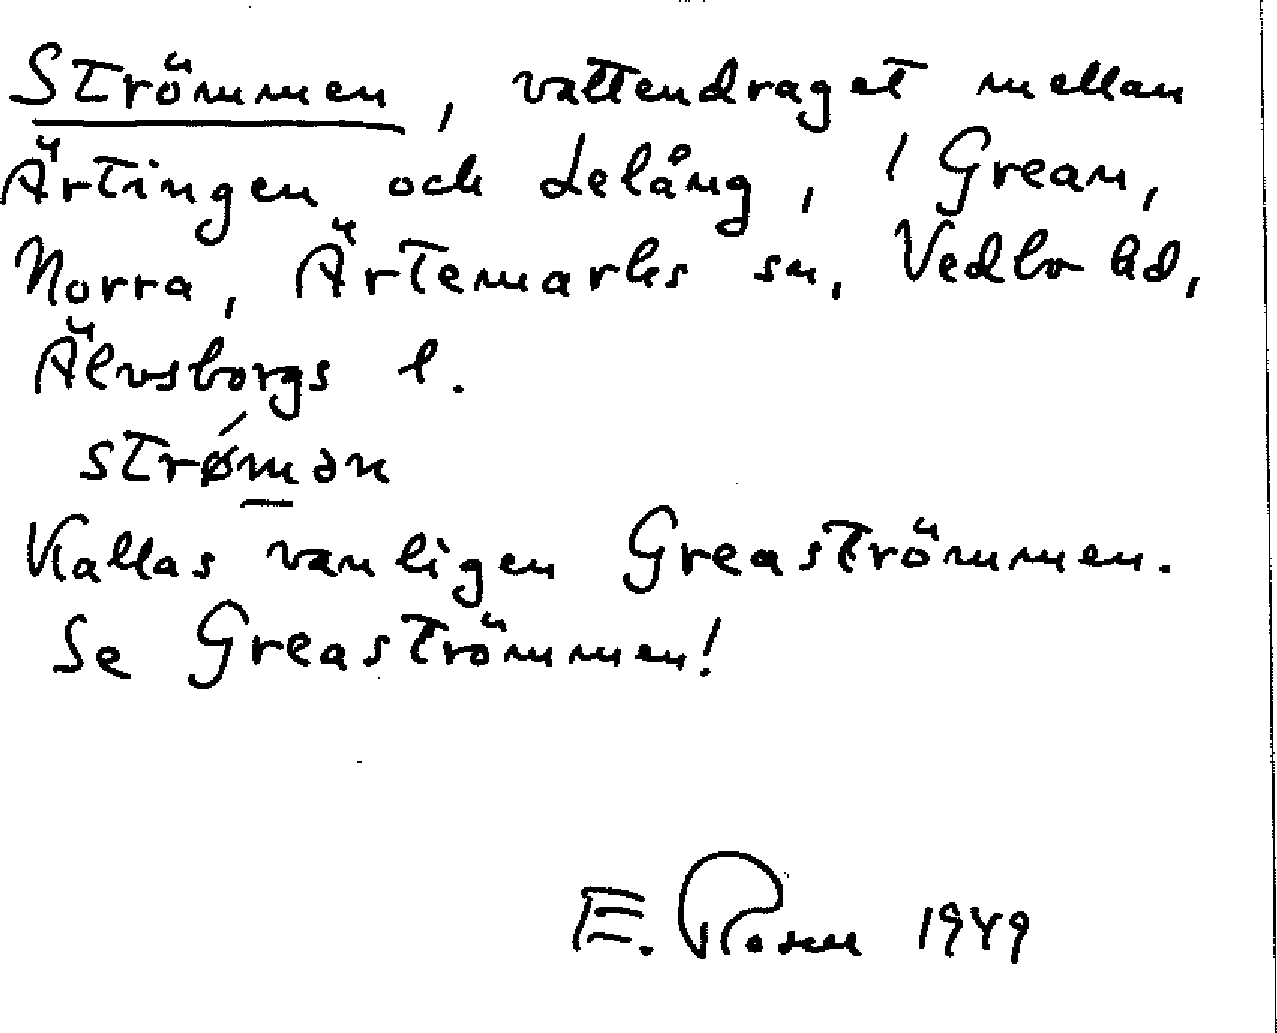 Strömmen, vattendraget mellan
Ärtingen och Lelång, / Grean,
Norra, Ärtemarks sn, Vedbo hd,
Älvsborgs l.
strǿmən
Kallas vanligen Greaströmmen.
Se Greaströmmen!
E. Rosen 1949